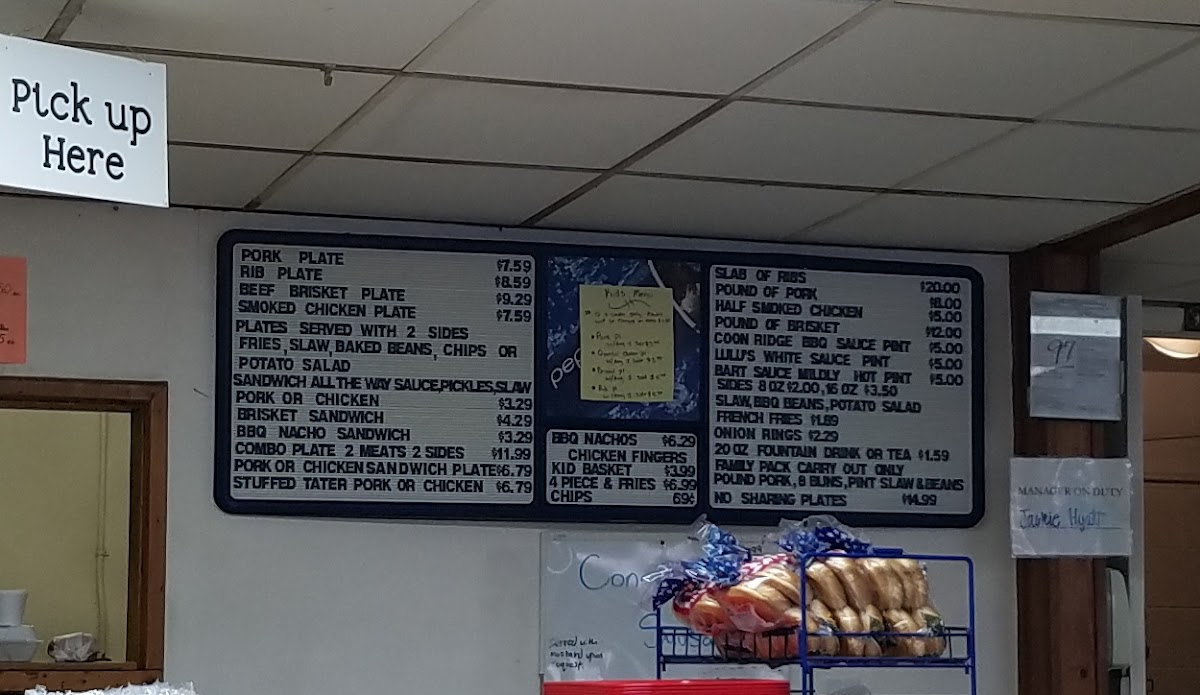 Pick up
Here
PORK PLATE $7.59
RIB PLATE $8.59
BEEF BRISKET PLATE $9.29
SMOKED CHICKEN PLATE $7.59
PLATES SERVED WITH 2 SIDES
FRIES,SLAW,BAKED BEANS, CHIPS OR
POTATO SALAD
SANDWICH ALL THE WAY SAUCE,PICKLES,SLAW
PORK OR CHICKEN $3.29
BRISKET SANDWICH $4.29
BBQ NACHO SANDWICH $3.29
COMBO PLATE 2 MEATS 2 SIDES $11.99
PORK OR CHICKEN SANDWICH PLATE $6.79
STUFFED TATER PORK OR CHICKEN $6.79
Kids Menu
BBQ NACHOS $6.29
CHICKEN FINGERS
KID BASKET $3.99
4 PIECE & FRIES $6.99
CHIPS 69¢
SLAB OF RIBS $20.00
POUND OF PORK $8.00
HALF SMOKED CHICKEN $5.00
POUND OF BRISKET $12.00
COON RIDGE BBQ SAUCE PINT $5.00
LULU'S WHITE SAUCE PINT $5.00
BART SAUCE MILDLY HOT PINT $5.00
SIDES 8 OZ $2.00, 16 OZ $3.50
SLAW, BBQ BEANS, POTATO SALAD
FRENCH FRIES $1.89
ONION RINGS $2.29
20 OZ FOUNTAIN DRINK OR TEA $1.59
FAMILY PACK CARRY OUT ONLY
POUND PORK, 8 BUNS, PINT SLAW & BEANS
NO SHARING PLATES $14.99
97
MANAGER ON DUTY
Con
Served with
mustard upon
request